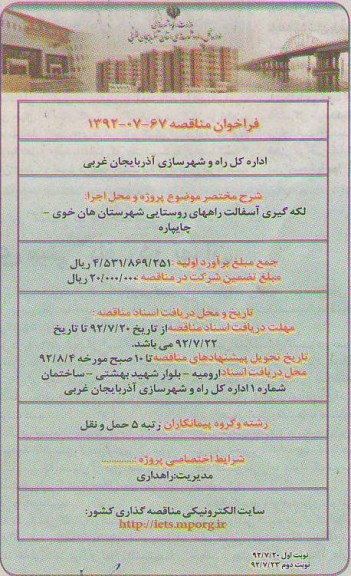 وزارت راه و شهرسازی
اداره کل راه و شهرسازی استان آذربایجان غربی
فراخوان مناقصه ۶۷-۰۷-۱۳۹۲
اداره کل راه و شهرسازی آذربایجان غربی
شرح مختصر موضوع پروژه و محل اجرا:
لکه گیری آسفالت راههای روستایی شهرستان هان خوی –
چایپاره
جمع مبلغ برآورد اولیه :۴/۵۳۱/۸۶۹/۲۵۱ ریال
مبلغ تضمین شرکت در مناقصه :۲۰/۰۰۰/۰۰۰ ریال
تاریخ و محل دریافت اسناد مناقصه :
مهلت دریافت اسناد مناقصه از تاریخ ۹۲/۷/۲۰ تا تاریخ
۹۲/۷/۲۲ می باشد.
تاریخ تحویل پیشنهادهای مناقصه تا ۱۰ صبح مورخه ۹۲/۸/۴
محل دریافت اسناد ارومیه – بلوار شهید بهشتی – ساختمان
شماره ۱ اداره کل راه و شهرسازی آذربایجان غربی
رشته وگروه پیمانکاران رتبه ۵ حمل و نقل
شرایط اختصاصی پروژه :............
مدیریت:راهداری
سایت الکترونیکی مناقصه گذاری کشور:
http://iets.mporg.ir
نوبت اول ۹۲/۷/۲۰
نوبت دوم ۹۲/۷/۲۳